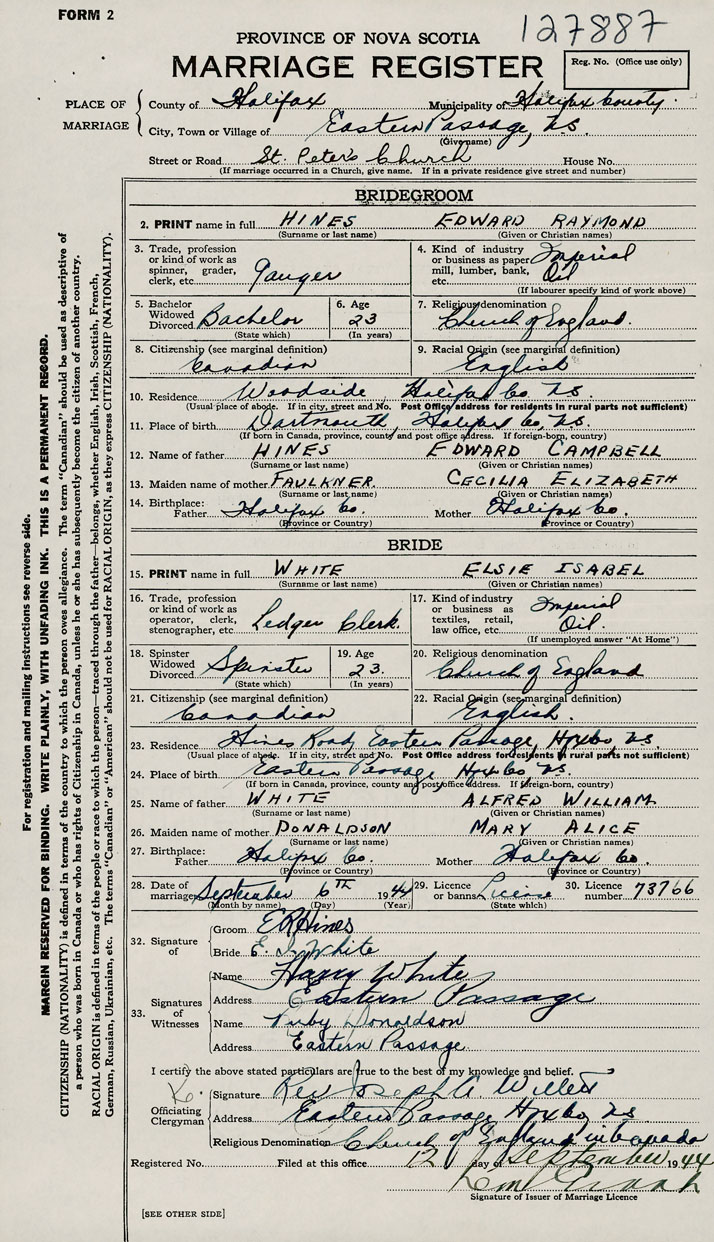 FORM 2
127887
PROVINCE OF NOVA SCOTIA
MARRIAGE REGISTER
Reg. No. (Office use only)
PLACE OF MARRIAGE
County of Halifax Municipality of Halifax County.
City, Town or Village of Eastern Passage, N.S.
(Give name)
Street or Road St. Peter's Church House No.
(If marriage occurred in a Church, give name. If in a private residence give street and number)
BRIDEGROOM
2. PRINT name in full HINES EDWARD RAYMOND
(Surname or last name) (Given or Christian names)
3. Trade, profession or kind of work as spinner, grader, clerk, etc. Gauger
4. Kind of industry or business as paper mill, lumber, bank, etc. Imperial Oil
(If labourer specify kind of work above)
5. Bachelor Widowed Divorced Bachelor
(State which)
6. Age 23
(In years)
7. Religious denomination Church of England.
8. Citizenship (see marginal definition) Canadian
9. Racial Origin (see marginal definition) English
10. Residence Woodside, Halifax Co. N.S.
(Usual place of abode. If in city, street and No. Post Office address for residents in rural parts not sufficient)
11. Place of birth Dartmouth, Halifax Co. N.S.
(If born in Canada, province, county and post office address. If foreign-born, country)
12. Name of father HINES EDWARD CAMPBELL
(Surname or last name) (Given or Christian names)
13. Maiden name of mother FAULKNER CECILIA ELIZABETH
(Surname or last name) (Given or Christian names)
14. Birthplace: Father Halifax Co. Mother Halifax Co.
(Province or Country) (Province or Country)
BRIDE
15. PRINT name in full WHITE ELSIE ISABEL
(Surname or last name) (Given or Christian names)
16. Trade, profession or kind of work as operator, clerk, stenographer, etc. Ledger Clerk.
17. Kind of industry or business as textiles, retail, law office, etc. Imperial Oil.
(If unemployed answer "At Home")
18. Spinster Widowed Divorced Spinster
(State which)
19. Age 23.
(In years)
20. Religious denomination Church of England
21. Citizenship (see marginal definition) Canadian
22. Racial Origin (see marginal definition) English.
23. Residence Hines Road, Eastern Passage, Hfx Co, N.S.
(Usual place of abode. If in city, street and No. Post Office address for residents in rural parts not sufficient)
24. Place of birth Eastern Passage Hfx Co, N.S.
(If born in Canada, province, county and post office address. If foreign-born, country)
25. Name of father WHITE ALFRED WILLIAM
(Surname or last name) (Given or Christian names)
26. Maiden name of mother DONALDSON MARY ALICE
(Surname or last name) (Given or Christian names)
27. Birthplace: Father Halifax Co. Mother Halifax Co.
(Province or Country) (Province or Country)
28. Date of marriage September 6TH 1944
(Month by name) (Day) (Year)
29. Licence or banns License
(State which)
30. Licence number 73766
32. Signature of
Groom E R Hines
Bride E. I. White
33. Signatures of Witnesses
Name Harry White
Address Eastern Passage
Name Ruby Donaldson
Address Eastern Passage
I certify the above stated particulars are true to the best of my knowledge and belief.
Officiating Clergyman
Signature Rev Joseph A. Willett
Address Eastern Passage Hfx Co, N.S.
Religious Denomination Church of England in Canada
Registered No. Filed at this office 12 day of September 1944
Signature of Issuer of Marriage Licence
[SEE OTHER SIDE]
For registration and mailing instructions see reverse side.
MARGIN RESERVED FOR BINDING. WRITE PLAINLY, WITH UNFADING INK. THIS IS A PERMANENT RECORD.
CITIZENSHIP (NATIONALITY) is defined in terms of the country to which the person owes allegiance. The term "Canadian" should be used as descriptive of
a person who was born in Canada or who has rights of Citizenship in Canada, unless he or she has subsequently become the citizen of another country.
RACIAL ORIGIN is defined in terms of the people or race to which the person—traced through the father—belongs, whether English, Irish, Scottish, French,
German, Russian, Ukrainian, etc. The terms "Canadian" or "American" should not be used for RACIAL ORIGIN, as they express CITIZENSHIP (NATIONALITY).